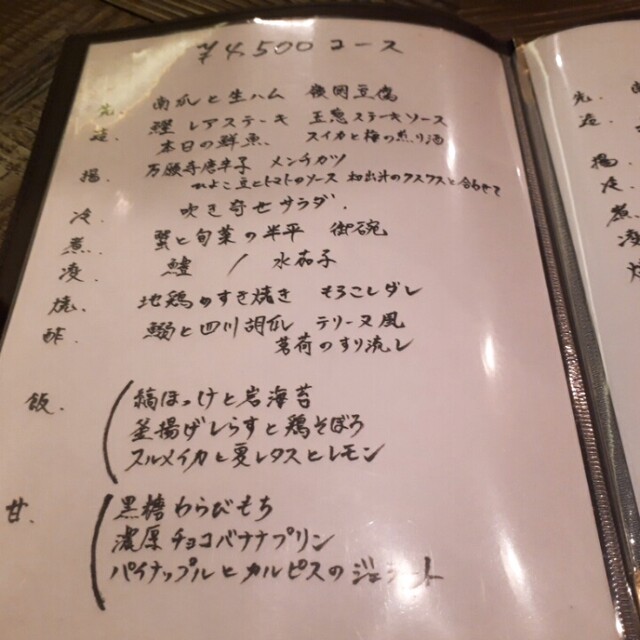 ¥4,500コース
先. 南瓜と生ハム 豆腐
造. 鰹 レアステーキ 玉葱ステーキソース
本日の鮮魚、 スイカと梅の煎り酒
揚. 万願寺唐辛子 メンチカツ
ひよこ豆とトマトのソース 和出汁のクスクスと合わせて
冷. 吹き寄せサラダ.
煮. 蟹と旬菜の半平 御碗
凌. 鱧 / 水茄子
焼. 地鶏のすき焼き もろこしダレ
酢. 鰯と四川胡瓜 テリーヌ風
茗荷のすり流し
飯. 縞ほっけと岩海苔
釜揚げしらすと鶏そぼろ
スルメイカと夏レタスとレモン
甘. 黒糖わらびもち
濃厚チョコバナナプリン
パイナップルとカルピスのジェラート
先.
造.
揚.
冷.
煮.
凌.
焼.